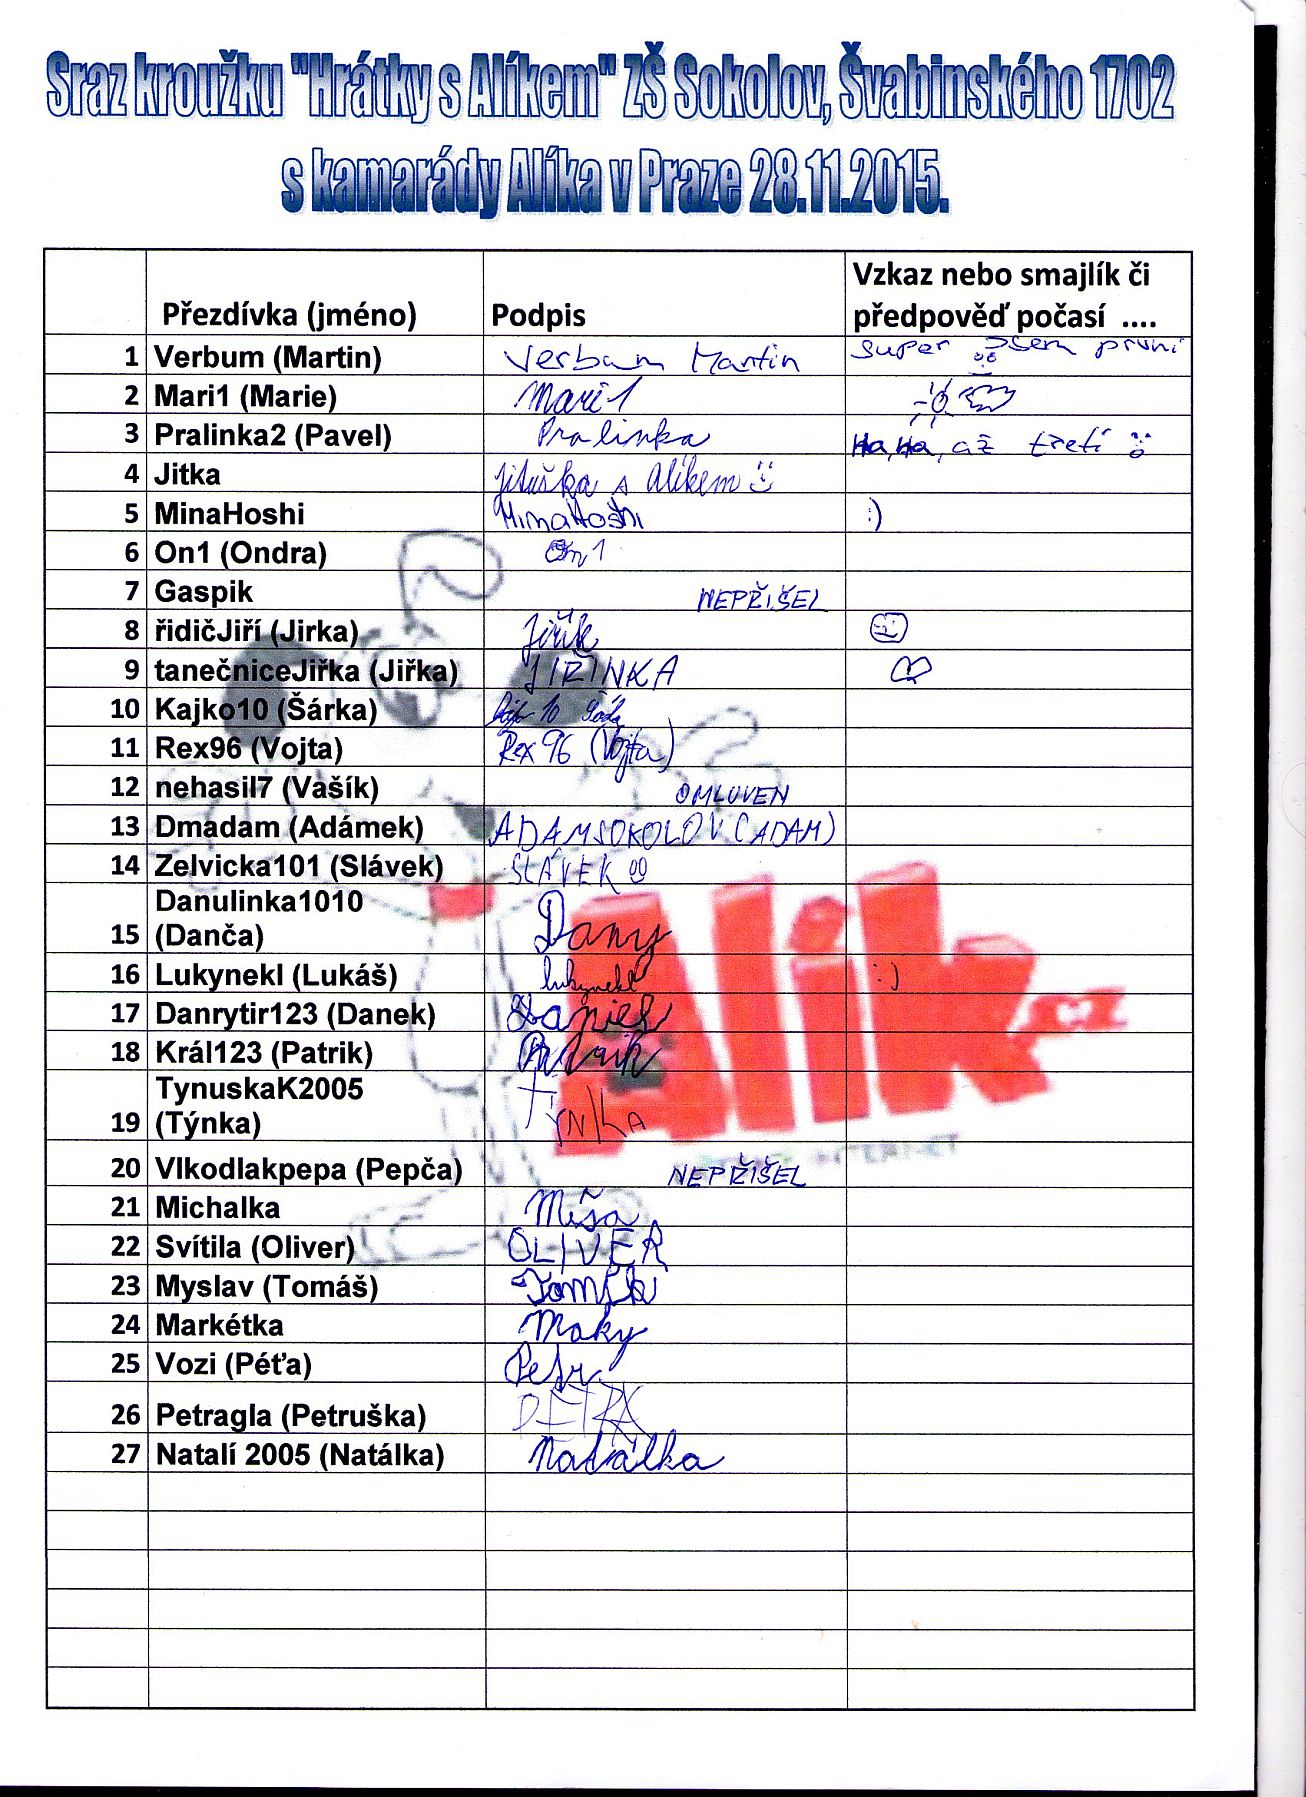 Sraz kroužku "Hrátky s Alíkem" ZŠ Sokolov, Švabinského 1702
s kamarády Alíka v Praze 28.11.2015.
Přezdívka (jméno) Podpis Vzkaz nebo smajlík či
předpověď počasí ....
1 Verbum (Martin) Verbum Martin super jsem první
2 Mari1 (Marie) Mari1
3 Pralinka2 (Pavel) Pralinka Ha, Ha, až třetí
4 Jitka Jituška s Alíkem :)
5 MinaHoshi MinaHoshi :)
6 On1 (Ondra) On1
7 Gaspik NEPŘIŠEL
8 řidičJiří (Jirka) Jiřík
9 tanečniceJiřka (Jiřka) JIŘINKA
10 Kajko10 (Šárka)
11 Rex96 (Vojta) Rex96 (Vojta)
12 nehasil7 (Vašík) OMLUVEN
13 Dmadam (Adámek) ADAMSOKOLOV (ADAM)
14 Zelvicka101 (Slávek) SLÁVEK
Danulinka1010
15 (Danča) Dany
16 Lukynekl (Lukáš) lukynekl :)
17 Danrytir123 (Danek) Daniel
18 Král123 (Patrik) Patrik
TynuskaK2005
19 (Týnka) TÝNKA
20 Vlkodlakpepa (Pepča) NEPŘIŠEL
21 Michalka Míša
22 Svítila (Oliver) OLIVER
23 Myslav (Tomáš) Tomík
24 Markétka Maky
25 Vozi (Péťa) Petr
26 Petragla (Petruška) PETRA
27 Natalí 2005 (Natálka) Natálka
Alík.cz
INTERNET